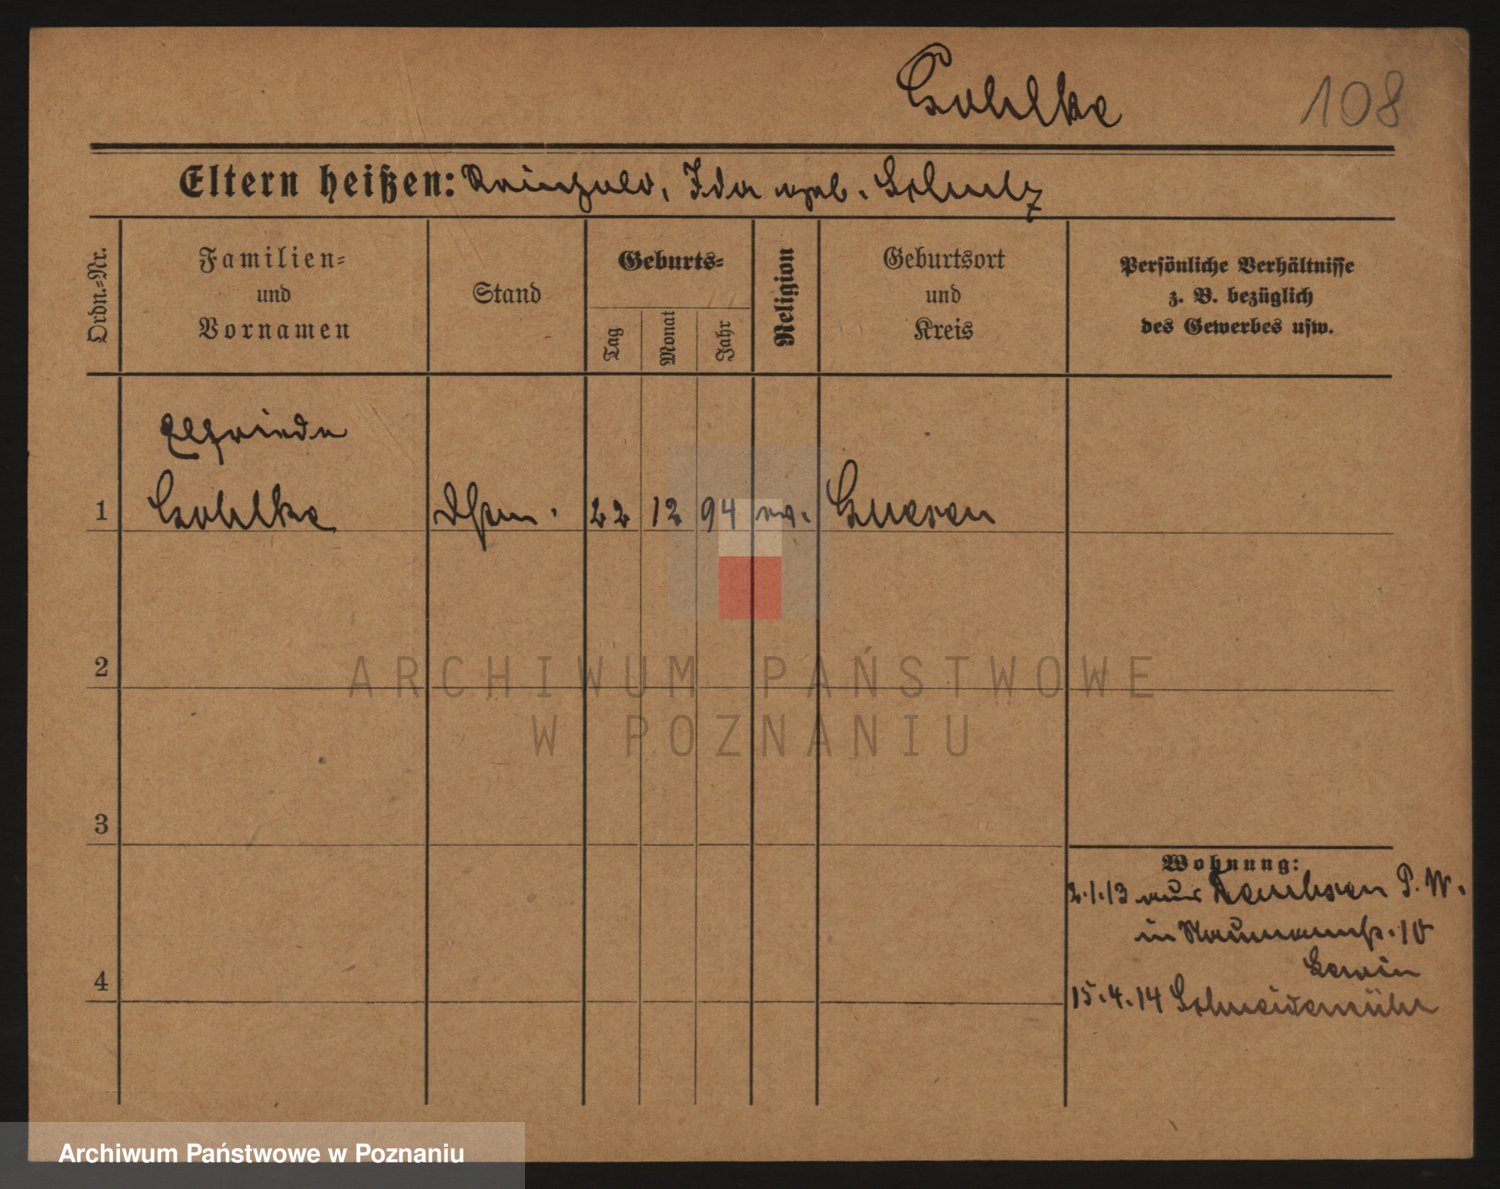 Gohlke 108
Eltern heißen: Reinhold, Ida geb. Schulz
Ordn.-Nr.
Familien-
und
Vornamen
Stand
Geburts-
Tag
Monat
Jahr
Religion
Geburtsort
und
Kreis
Persönliche Verhältnisse
z. B. bezüglich
des Gewerbes usw.
Elfriede
1 Gohlke 22 12 94 ev. Gnesen
2
3
Wohnung:
2.1.13 aus P. W.
in Naumannstr. 10
4
15.4.14 Schneidemühl
ARCHIWUM PAŃSTWOWE
W POZNANIU
Archiwum Państwowe w Poznaniu